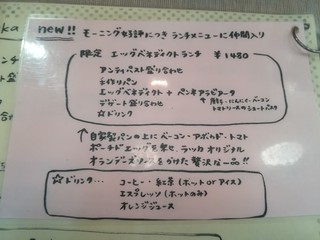 new!! モーニング好評につき ランチメニューに仲間入り
限定 エッグベネディクトランチ ￥1480
アンティパスト盛り合わせ
手作りパン
エッグベネディクト + ペンネアラビアータ
デザート盛り合わせ
☆ドリンク
↑ 唐辛子・にんにく・ベーコン
トマトソースのショートパスタ
↑自家製パンの上に ベーコン・アボカド・トマト
ポーチドエッグを乗せ、ラッカ オリジナル
オランデーズソースをかけた贅沢な一品!!
☆ドリンク… コーヒー・紅茶(ホット or アイス)
エスプレッソ(ホットのみ)
オレンジジュース